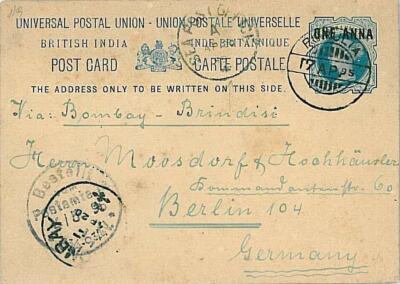 UNIVERSAL POSTAL UNION - UNION POSTALE UNIVERSELLE
BRITISH INDIA INDE-BRITANNIQUE
POST CARD CARTE POSTALE
THE ADDRESS ONLY TO BE WRITTEN ON THIS SIDE.
ONE ANNA
SEA POST OFFICE
17 AP 95
Via: Bombay - Brindisi
Herren Moosdorf & Hochhäusler
Kommandantenstr. 60
Berlin 104
Germany
Bestellt
Postamte